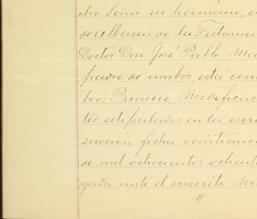 dho Señor su hermano, e
de Albacea de la Testamen
Doctor Don José Pablo Ma
padre de ambos, está con
bes: Primero, Modificac
tes estipulados en la escri
sucesión fecha veintiune
de mil ochocientos ochent
gada ante el suscrito No